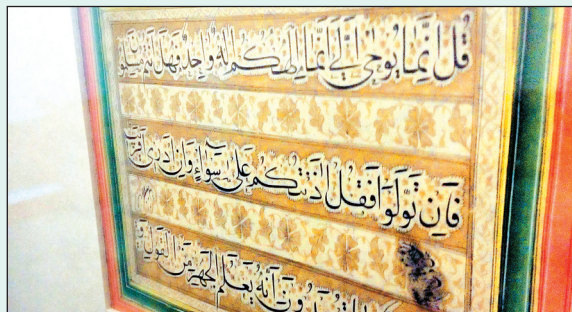 قُلْ اِنَّمَا يُوحٰى اِلَيَّ اَنَّمَا اِلٰهُكُمْ اِلٰهٌ وَاحِدٌ فَهَلْ اَنْتُمْ مُسْلِمُونَ
فَاِنْ تَوَلَّوْا فَقُلْ اٰذَنْتُكُمْ عَلٰى سَوَاءٍ وَاِنْ اَدْرٖى اَقَرٖيبٌ
اِنَّهُ يَعْلَمُ الْجَهْرَ مِنَ الْقَوْلِ